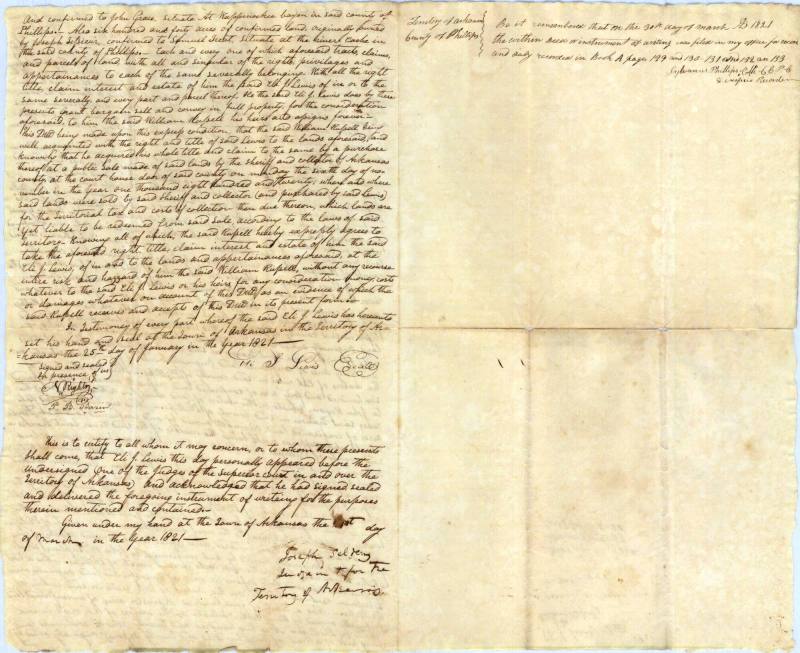 And confirmed to John Grace, situate at Kappinockee bayou in said county of
Phillips— Also six hundred and forty acres of confirmed land, originally owned
by Joseph confirmed to Samuel situate at the in
the said county of Phillips— Each and every one of which aforesaid tracts, claims,
and parcels of land with all and singular of the rights, privilages and
appertainances to each of the same severally belonging. With all the right
title, claim interest and estate of him the said Eli J. Lewis of in or to the
same severally, and every part and parcel thereof. He the said Eli J. Lewis does by these
presents grant bargain sell and convey in full property, for the consideration
aforesaid, to him the said William Russell his heirs and assigns forever—
This Deed being made upon this express condition, that the said William Russell being
well acquainted with the right and title of said Lewis to the lands aforesaid, and
knowing that he acquired his whole title and claim to the same by a purchase
thereof at a public sale made of said lands by the sheriff and collector of Arkansas
county at the court house door of said county on monday the sixth day of no-
vember in the year one thousand eight hundred and twenty, when and where
said lands were sold by said sheriff and collector (and purchased by said Lewis)
for the Territorial tax and costs of collection then due thereon, which lands are
yet liable to be redeemed from said sale, according to the laws of said
Territory. Knowing all of which, the said Russell hereby expressly agrees to
take the aforesaid right, title, claim interest and estate of him the said
Eli J. Lewis, of in and to the lands and appertainances aforesaid, at the
entire risk and hazzard of him the said William Russell, without any recourse
whatever to the said Eli J. Lewis or his heirs for any consideration money, costs
or damages whatever on account of this Deed, as an evidence of which the
said Russell receives and accepts of this Deed in its present form—
In Testimony of every part whereof the said Eli J. Lewis has hereunto
set his hand and seal at the Town of Arkansas in the Territory of Ar-
kansas the 25th day of January in the Year 1821—
signed and sealed
in presence of us
Eli J Lewis Seal
This is to certify to all whom it may concern, or to whom these presents
shall come, that Eli J. Lewis this day personally appeared before the
undersigned (one of the Judges of the Superior court in and over the
Territory of Arkansas) and acknowledged that he had signed sealed
and delivered the foregoing instrument of writing for the purposes
therein mentioned and contained.
Given under my hand at the Town of Arkansas the day
of March in the Year 1821—
Joseph Selden
Judge in & for the
Territory of Arkansas
Territory of Arkansas
County of Phillips
Be it remembered that on the 30th day of march AD 1821
the within deed or instrument of writing was filed in my office for record
and duly recorded in Book A page 129 and 130- 131 and 132 an 133
Sylvanus Phillips Clk C C P C
& exofficio Recorder